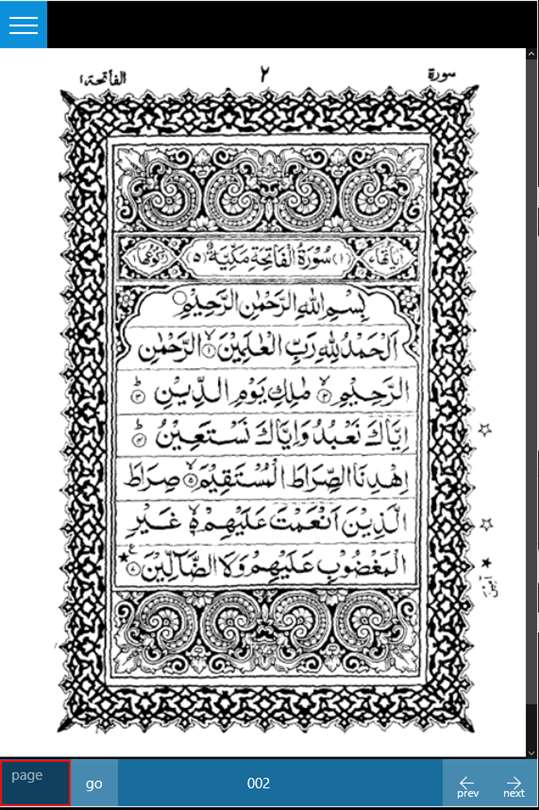 سورة ٢ الفاتحة ١
سُوْرَةُ الْفَاتِحَةِ مَكِّيَّةٌ
بِسْمِ اللهِ الرَّحْمٰنِ الرَّحِيْمِ
اَلْحَمْدُ لِلّٰهِ رَبِّ الْعٰلَمِيْنَ ۙ﴿۱﴾ الرَّحْمٰنِ
الرَّحِيْمِ ۙ﴿۲﴾ مٰلِكِ يَوْمِ الدِّيْنِ ؕ﴿۳﴾
اِيَّاكَ نَعْبُدُ وَاِيَّاكَ نَسْتَعِيْنُ ؕ﴿۴﴾
اِهْدِنَا الصِّرَاطَ الْمُسْتَقِيْمَ ۙ﴿۵﴾ صِرَاطَ
الَّذِيْنَ اَنْعَمْتَ عَلَيْهِمْ ۙ۬ غَيْرِ
الْمَغْضُوْبِ عَلَيْهِمْ وَلَا الضَّآلِّيْنَ
page go 002 prev next